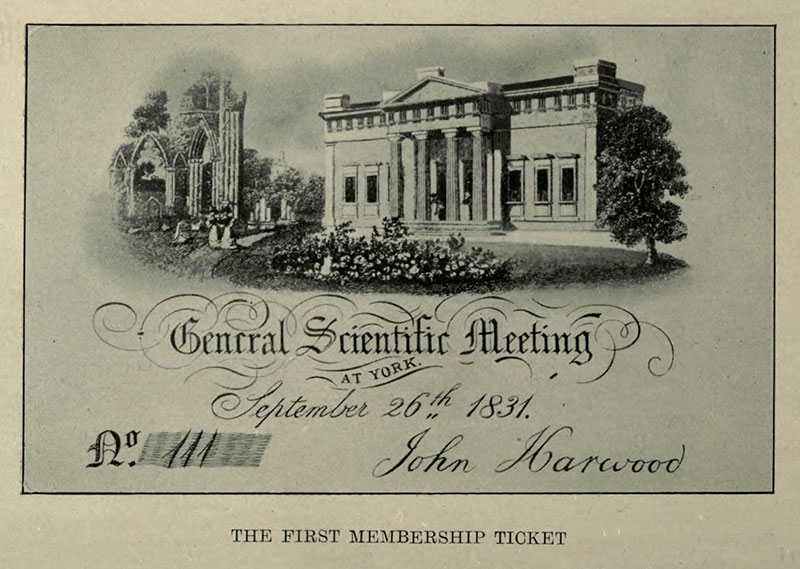 General Scientific Meeting
AT YORK.
September 26th 1831.
No. 111
John Harwood
THE FIRST MEMBERSHIP TICKET